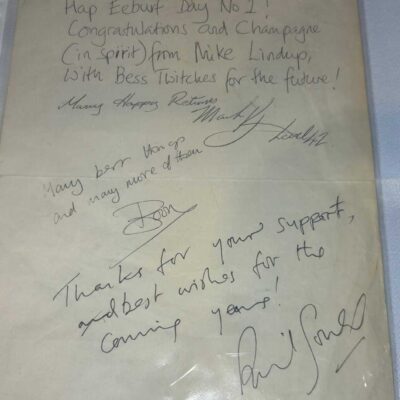 Hap Eeburt Day No 1!
Congratulations and Champagne
(in spirit) from Mike Lindup,
With Bess Twitches for the future!
Many Happy Returns
Mark K
Level 42
Many best things
and many more of them
Boon
Thanks for your support,
and best wishes for the
coming years!
Phil Gould